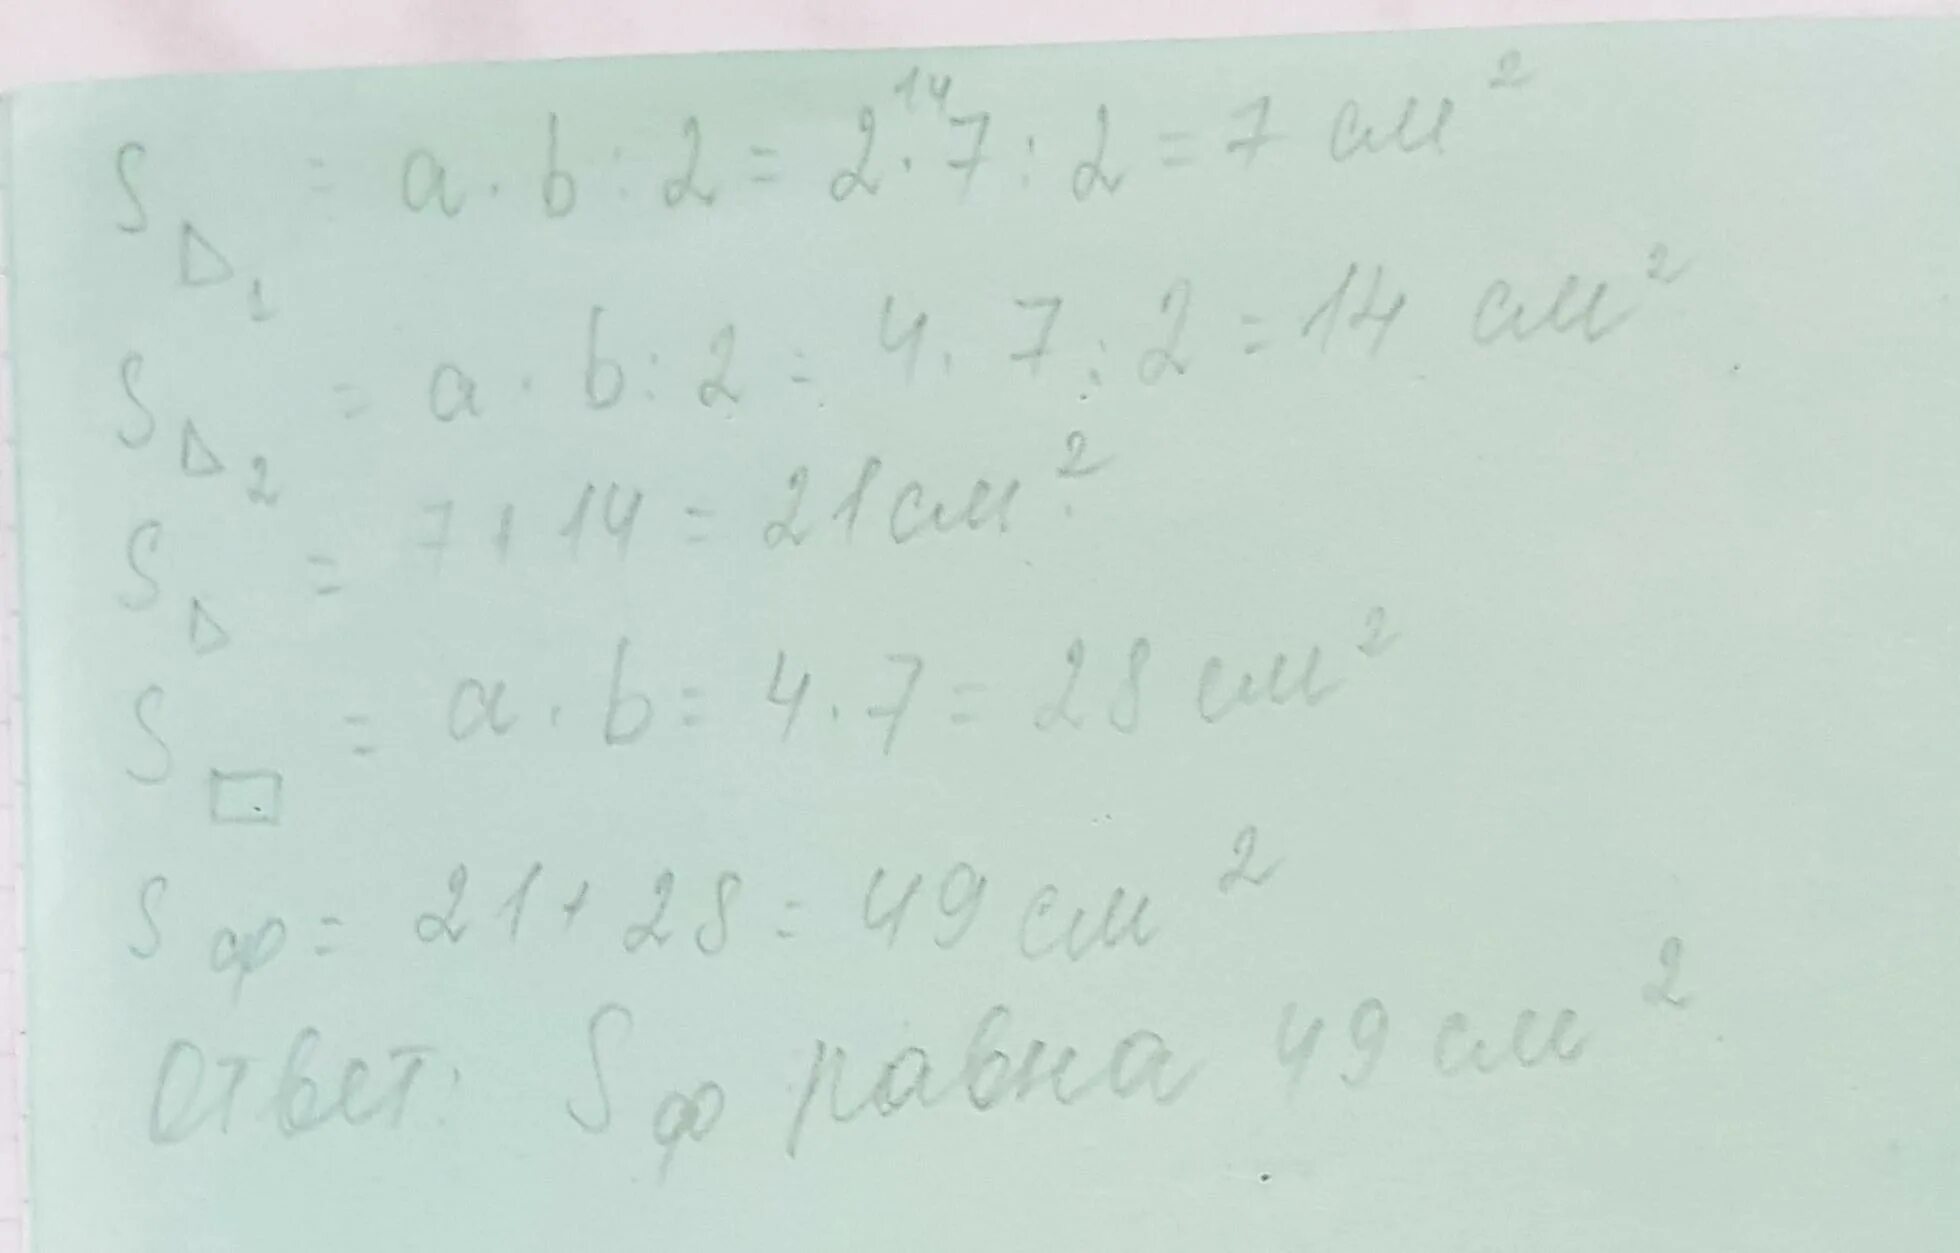 S△₁ = a · b : 2 = 2 · 7 : 2 = 7 см²
14
S△₂ = a · b : 2 = 4 · 7 : 2 = 14 см²
S△ = 7 + 14 = 21 см²
S□ = a · b = 4 · 7 = 28 см²
Sф = 21 + 28 = 49 см²
Ответ: Sф равна 49 см²